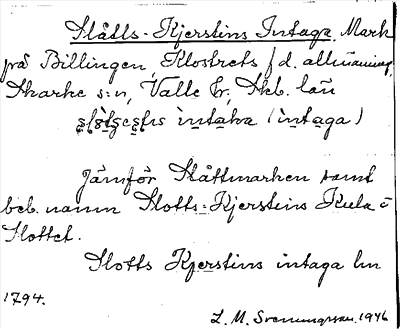 Slåtts-Kjerstins Intaga. Mark
på Billingen, Klostrets f.d. allmänning,
Skarke s:n, Valle hd, Skb. län
ìntaka (ìntaga)
Jämför Slåttmarken samt
beb.namn Slotts-Kjerstins Kula i
Slottet.
Slotts Kjerstins intaga lm
1794.
L. M. Svenungsson. 1946